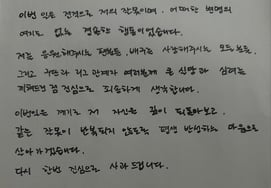 이번 일은 전적으로 저의 잘못이며, 어떠한 변명의
여지도 없는 경솔한 행동이었습니다.
저를 응원해주시는 팬분들, 배구를 사랑해주시는 모든 분들,
그리고 구단과 리그 관계자 여러분께 큰 실망과 심려를
끼쳐드린 점 진심으로 죄송하게 생각합니다.
이번일을 계기로 저 자신을 깊이 되돌아보고,
같은 잘못이 반복되지 않도록 평생 반성하는 마음으로
살아가겠습니다.
다시 한번 진심으로 사과드립니다.